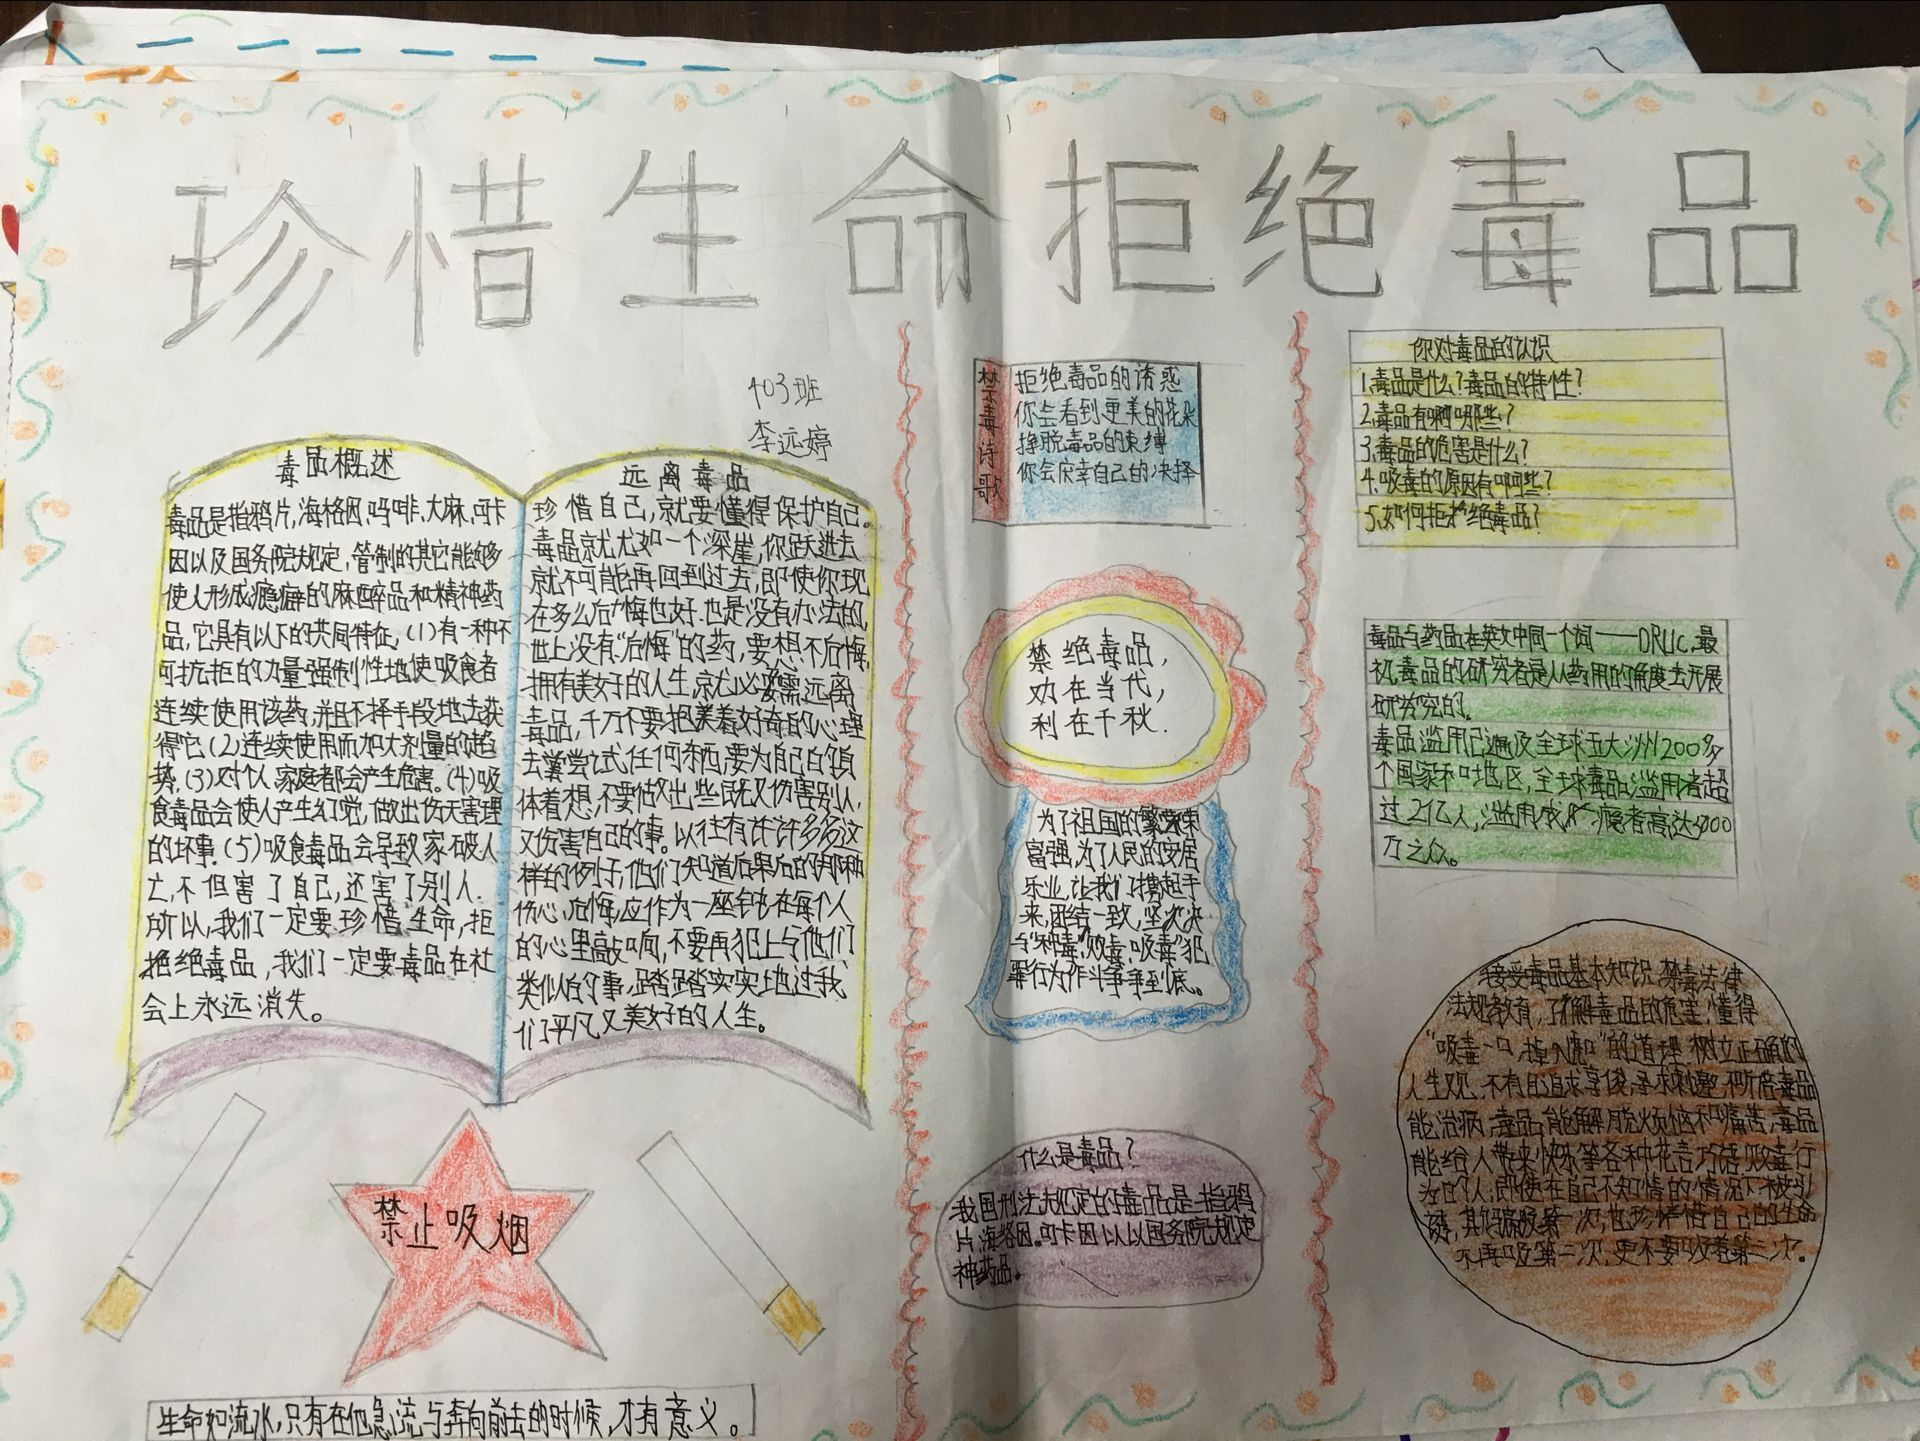 珍惜生命拒绝毒品
403班
李远婷
毒品概述
毒品是指鸦片,海格因,吗啡,大麻,可卡
因以及国务院规定,管制的其它能够
使人形成瘾癖的麻醉品和精神药
品,它具有以下的共同特征,(1)有一种不
可抗拒的力量强制性地使吸食者
连续使用该药,并且不择手段地去获
得它(2)连续使用而加大剂量的趋
势,(3)对个人,家庭都会产生危害。(4)吸
食毒品会使人产生幻觉,做出伤天害理
的坏事.(5)吸食毒品会导致家破人
亡,不但害了自己,还害了别人.
所以,我们一定要珍惜生命,拒
绝毒品,我们一定要毒品在社
会上永远消失。
远离毒品
珍惜自己,就要懂得保护自己。
毒品就尤如一个深崖,你跃进去
就不可能再回到过去,即使你现
在多么后悔也好.也是没有办法的,
世上没有“后悔”的药,要想不后悔,
拥有美好的人生,就必需远离
毒品,千万不要抱着好奇的心理
去尝试任何东西,要为自己的身
体着想,不要做出些既又伤害别人,
又伤害自己的事。以往有许许多多这
样的例子,他们知道后果后的那种
伤心、后悔,应作为一座钟在每个人
的心里敲响,不要再犯上与他们
类似的事,踏踏实实地过我
们平凡又美好的人生。
禁止吸烟
生命如流水,只有在他急流与奔向前去的时候,才有意义。
禁毒诗歌
拒绝毒品的诱惑
你会看到更美的花朵
挣脱毒品的束缚
你会庆幸自己的决择
禁绝毒品,
功在当代,
利在千秋.
为了祖国的繁荣
富强,为了人民的安居
乐业,让我们携起手
来,团结一致,坚决
与“种毒”,贩毒,吸毒”犯
罪行为作斗争到底。
什么是毒品?
我国刑法规定的毒品是指鸦
片,海格因.可卡因以以国务院规定
神药品。
你对毒品的认识
1.毒品是什么?毒品的特性?
2.毒品有哪些?
3.毒品的危害是什么?
4.吸毒的原因有哪些?
5.如何拒绝毒品?
毒品与药品在英文中同一个词——DRUC.最
初,毒品的研究者是从药用的角度去开展
研究的。
毒品滥用已遍及全球五大洲200多
个国家和地区,全球毒品滥用者超
过2亿人,滥用成瘾者高达
万之众。
接受毒品基本知识,禁毒法律
法规教育,了解毒品的危害,懂得
“吸毒一口,掉入虎口”的道理.树立正确的
人生观,不盲目追求享受,寻求刺激,不听信毒品
能治病,毒品能解脱烦恼和痛苦,毒品
能给人带来快乐等各种花言巧语,贩毒行
为的人,即使在自己不知情的情况下,被引
诱,其骗吸第一次,也珍惜自己的生命
不再吸第二次,更不要吸着第三次。